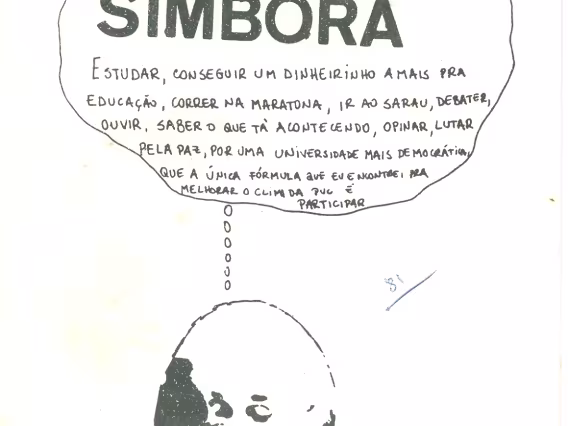 SIMBORA
ESTUDAR, CONSEGUIR UM DINHEIRINHO A MAIS PRA
EDUCAÇÃO, CORRER NA MARATONA, IR AO SARAU, DEBATER,
OUVIR, SABER O QUE TÁ ACONTECENDO, OPINAR, LUTAR
PELA PAZ, POR UMA UNIVERSIDADE MAIS DEMOCRÁTICA,
QUE A ÚNICA FÓRMULA QUE EU ENCONTREI PRA
MELHORAR O CLIMA DA PUC É
PARTICIPAR
81